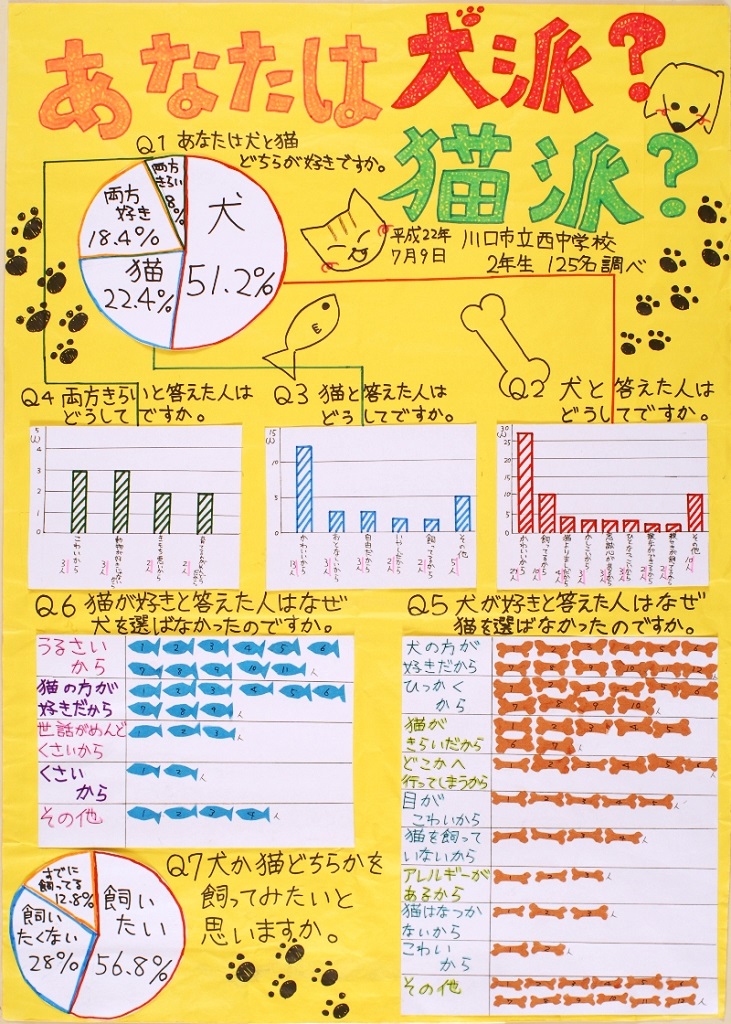 あなたは犬派?
猫派?
Q1 あなたは犬と猫
どちらが好きですか。
犬
51.2%
猫
22.4%
両方
好き
18.4%
両方
きらい
8%
平成22年
7月9日
川口市立西中学校
2年生 125名調べ
Q4 両方きらいと答えた人は
どうしてですか。
5
(人)
4
3
2
1
0
こわいから
3人
3人
2人
2人
Q3 猫と答えた人は
どうしてですか。
15
(人)
10
5
0
かわいいから
13人
3人
自由だから
3人
いやしだから
2人
飼ってるから
2人
その他
5人
Q2 犬と答えた人は
どうしてですか。
30
(人)
25
20
15
10
5
0
かわいいから
27人
飼ってるから
10人
猫よりましだから
4人
かしこいから
3人
3人
3人
2人
2人
その他
10人
Q6 猫が好きと答えた人はなぜ
犬を選ばなかったのですか。
うるさい
から
1 2 3 4 5 6
7 8 9 10 11 人
猫の方が
好きだから
1 2 3 4 5 6
7 8 9 人
世話がめんど
くさいから
1 2 3 人
くさい
から
1 2 人
その他
1 2 3 4 人
Q5 犬が好きと答えた人はなぜ
猫を選ばなかったのですか。
犬の方が
好きだから
1 2 3 4 5 6
7 8 9 10 11 12
ひっかく
から
1 2 3 4 5 6
7 8 9 10 人
猫が
きらいだから
1 2 3 4 5
6 7 人
どこかへ
行ってしまうから
1 2 3 4 5 6 人
目が
こわいから
1 2 3 4 5 人
猫を飼って
いないから
1 2 3 4 人
アレルギーが
あるから
1 2 3 人
猫はなつか
ないから
1 2 3 人
こわい
から
1 2 人
その他
1 2 3 4 5 6
7 8 9 10 11 12 人
Q7 犬か猫どちらかを
飼ってみたいと
思いますか。
飼い
たい
56.8%
飼い
たくない
28%
すでに
飼ってる
12.8%